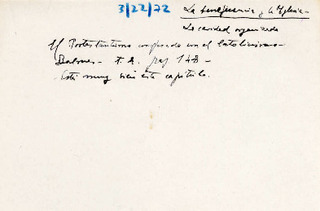 3/22/72
La beneficencia y la Iglesia
La caridad organizada
El Protestantismo comparado con el Catolicismo -
Balmes - T. II. pag 148 -
- Está muy bien este capítulo.